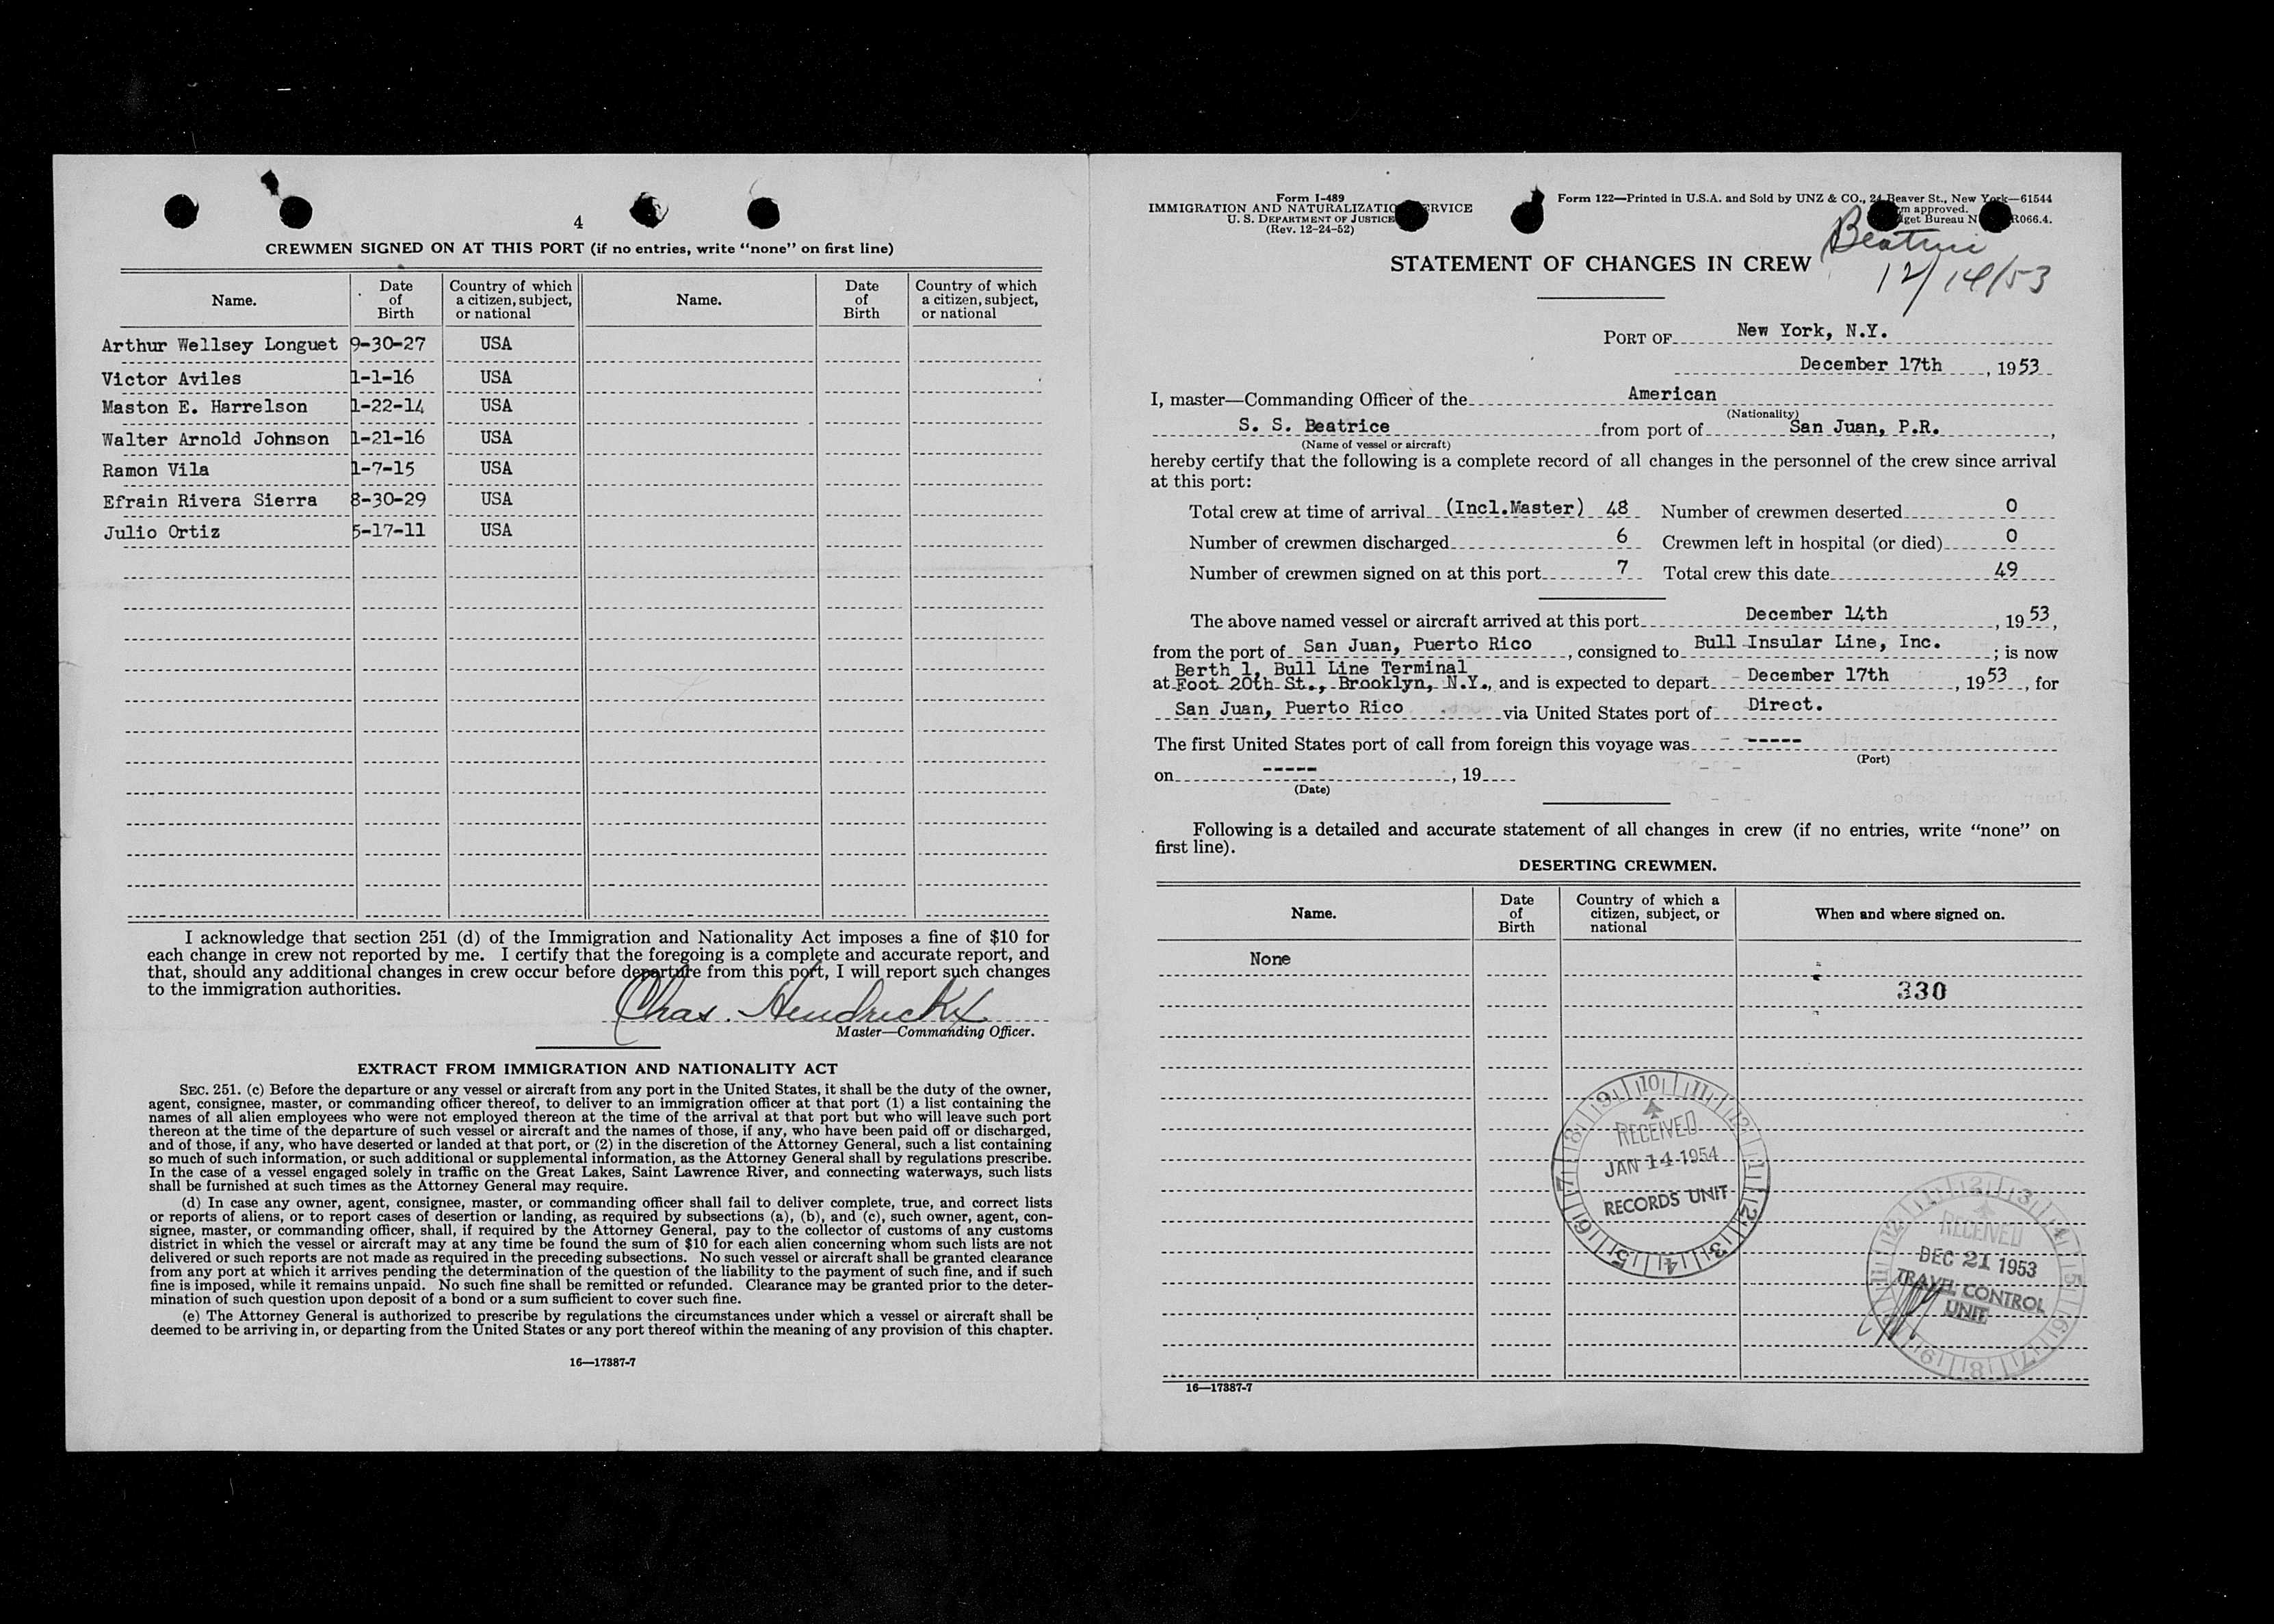 4
CREWMEN SIGNED ON AT THIS PORT (if no entries, write “none” on first line)
Name. Date of Birth Country of which a citizen, subject, or national Name. Date of Birth Country of which a citizen, subject, or national
Arthur Wellsey Longuet 9-30-27 USA
Victor Aviles 1-1-16 USA
Maston E. Harrelson 1-22-14 USA
Walter Arnold Johnson 1-21-16 USA
Ramon Vila 1-7-15 USA
Efrain Rivera Sierra 8-30-29 USA
Julio Ortiz 5-17-11 USA
I acknowledge that section 251 (d) of the Immigration and Nationality Act imposes a fine of $10 for
each change in crew not reported by me. I certify that the foregoing is a complete and accurate report, and
that, should any additional changes in crew occur before departure from this port, I will report such changes
to the immigration authorities.
Chas. Hendrickx
Master—Commanding Officer.
EXTRACT FROM IMMIGRATION AND NATIONALITY ACT
SEC. 251. (c) Before the departure or any vessel or aircraft from any port in the United States, it shall be the duty of the owner,
agent, consignee, master, or commanding officer thereof, to deliver to an immigration officer at that port (1) a list containing the
names of all alien employees who were not employed thereon at the time of the arrival at that port but who will leave such port
thereon at the time of the departure of such vessel or aircraft and the names of those, if any, who have been paid off or discharged,
and of those, if any, who have deserted or landed at that port, or (2) in the discretion of the Attorney General, such a list containing
so much of such information, or such additional or supplemental information, as the Attorney General shall by regulations prescribe.
In the case of a vessel engaged solely in traffic on the Great Lakes, Saint Lawrence River, and connecting waterways, such lists
shall be furnished at such times as the Attorney General may require.
(d) In case any owner, agent, consignee, master, or commanding officer shall fail to deliver complete, true, and correct lists
or reports of aliens, or to report cases of desertion or landing, as required by subsections (a), (b), and (c), such owner, agent, con-
signee, master, or commanding officer, shall, if required by the Attorney General, pay to the collector of customs of any customs
district in which the vessel or aircraft may at any time be found the sum of $10 for each alien concerning whom such lists are not
delivered or such reports are not made as required in the preceding subsections. No such vessel or aircraft shall be granted clearance
from any port at which it arrives pending the determination of the question of the liability to the payment of such fine, and if such
fine is imposed, while it remains unpaid. No such fine shall be remitted or refunded. Clearance may be granted prior to the deter-
mination of such question upon deposit of a bond or a sum sufficient to cover such fine.
(e) The Attorney General is authorized to prescribe by regulations the circumstances under which a vessel or aircraft shall be
deemed to be arriving in, or departing from the United States or any port thereof within the meaning of any provision of this chapter.
16—17887-7
Form I-489
IMMIGRATION AND NATURALIZATIO RVICE
U. S. DEPARTMENT OF JUSTICE
(Rev. 12-24-52)
Form 122—Printed in U.S.A. and Sold by UNZ & CO., 24 Beaver St., New York—61544
m approved.
get Bureau N R066.4.
Beatrice
12/14/53
STATEMENT OF CHANGES IN CREW
PORT OF New York, N.Y.
December 17th, 1953
I, master—Commanding Officer of the American
(Nationality)
S. S. Beatrice from port of San Juan, P.R.,
(Name of vessel or aircraft)
hereby certify that the following is a complete record of all changes in the personnel of the crew since arrival
at this port:
Total crew at time of arrival (Incl.Master) 48 Number of crewmen deserted 0
Number of crewmen discharged 6 Crewmen left in hospital (or died) 0
Number of crewmen signed on at this port 7 Total crew this date 49
The above named vessel or aircraft arrived at this port December 14th, 1953,
from the port of San Juan, Puerto Rico, consigned to Bull Insular Line, Inc.; is now
Berth 1, Bull Line Terminal
at Foot 20th St., Brooklyn, N.Y., and is expected to depart December 17th, 1953, for
San Juan, Puerto Rico via United States port of Direct.
The first United States port of call from foreign this voyage was -----
(Port)
on -----, 19
(Date)
Following is a detailed and accurate statement of all changes in crew (if no entries, write “none” on
first line).
DESERTING CREWMEN.
Name. Date of Birth Country of which a citizen, subject, or national When and where signed on.
None
330
RECEIVED
JAN 14 1954
RECORDS UNIT
RECEIVED
DEC 21 1953
TRAVEL CONTROL
UNIT
16—17887-7